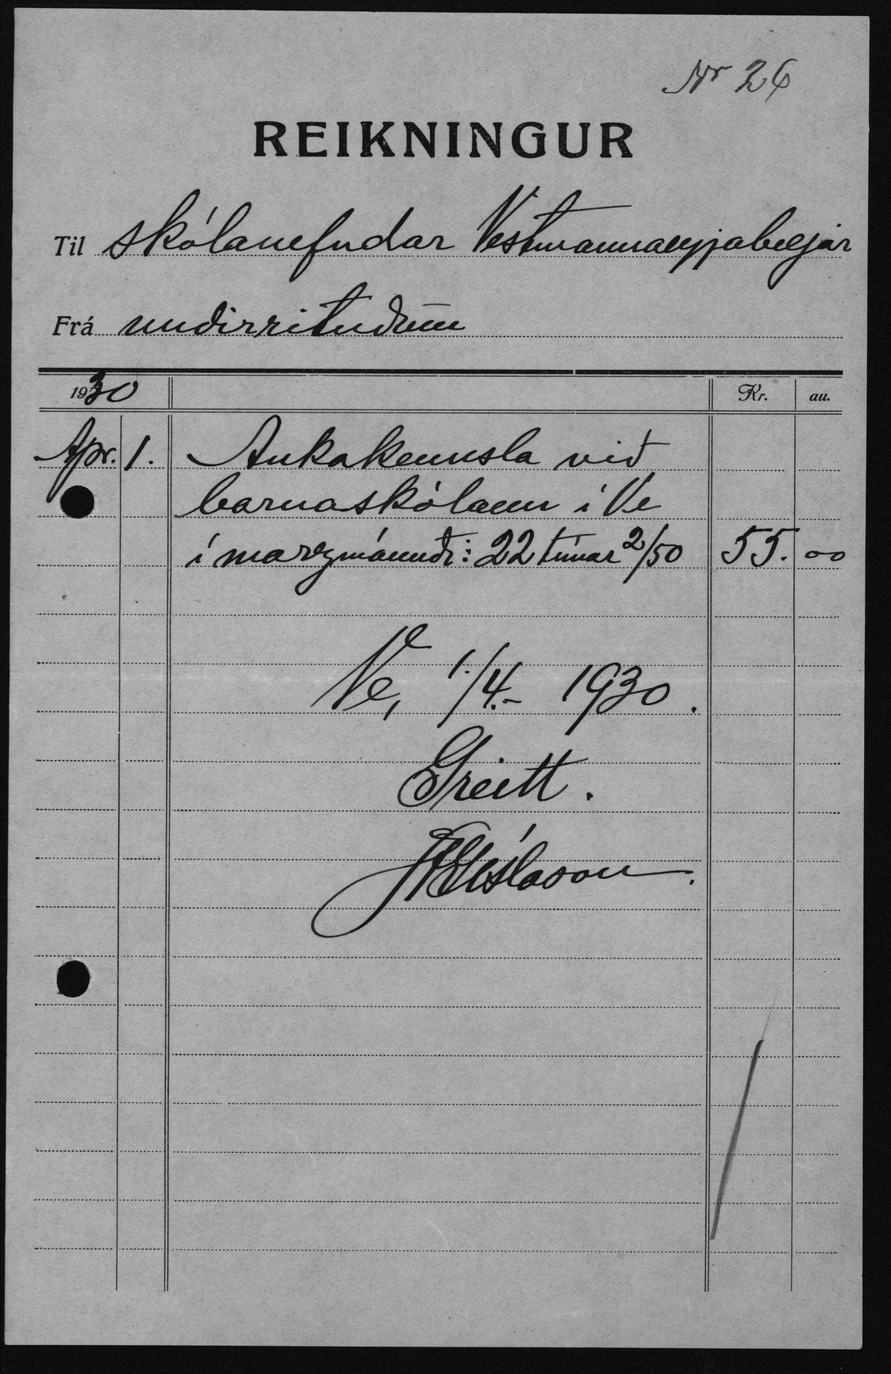 Nr 26
REIKNINGUR
Til skólanefndar Vestmannaeyjabæjar
Frá undirrituðum
1930 Kr. au.
Apr. 1. Aukakennsla við
barnaskólann í Ve
í marzmánuði: 22 tímar 2/50 55. oo
Ve, 1./4.- 1930.
Greitt.
Gíslason.